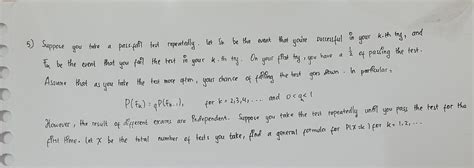 5) Suppose you take a pass-fail test repeatedly. Let Sk be the event that you're successful in your k-th try, and
Fk be the event that you fail the test in your k-th try. On your first try, you have a 1/2 of passing the test.
Assume that as you take the test more often, your chance of failing the test goes down. In particular,
P(Fk) = qP(Fk-1), for k = 2,3,4,... and 0<q<1
However, the result of different exams are independent. Suppose you take the test repeatedly until you pass the test for the
first time. Let X be the total number of tests you take, find a general formula for P(X=k) for k = 1,2,...